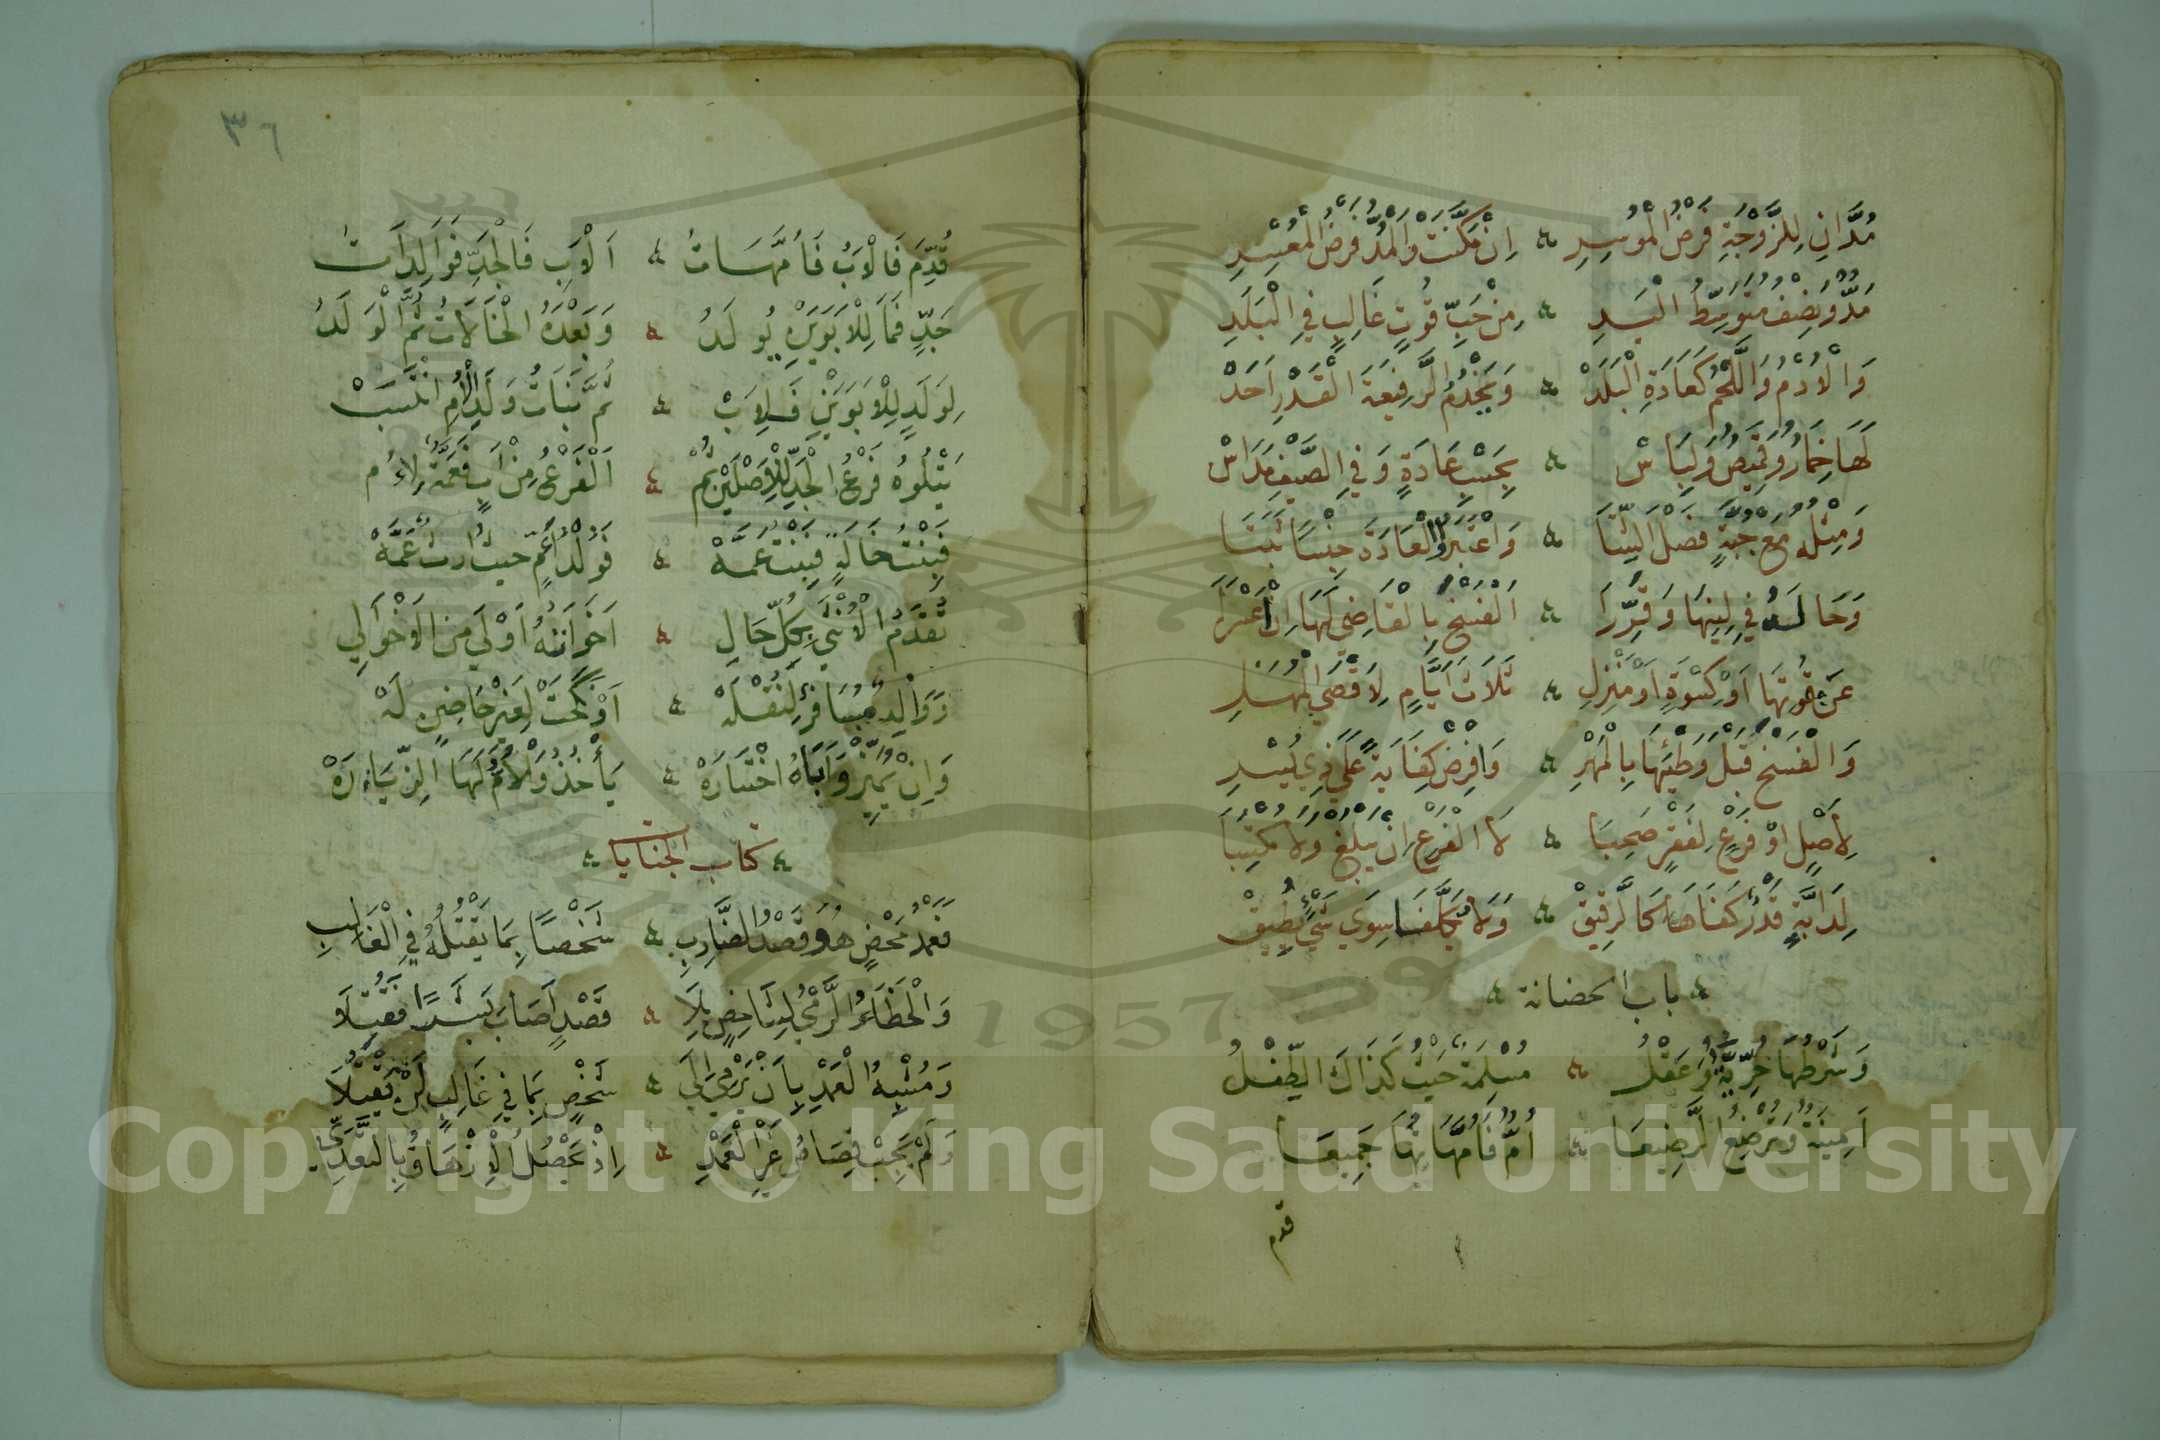 مُدَّانِ لِلزَّوْجَةِ فَرْضُ الْمُوسِرِ ۞ اِنْ مَكَّنَتْ وَالْمُدُّ فَرْضُ الْمُعْسِرِ
مُدٌّ وَنِصْفٌ مُتَوَسِّطُ الْيَدِ ۞ مِنْ حَبِّ قُوتٍ غَالِبٍ فِي الْبَلَدِ
وَالْاُدْمُ وَاللَّحْمُ كَعَادَةِ الْبَلَدْ ۞ وَيَخْدُمُ الرَّفِيعَةَ الْقَدْرِ اَحَدْ
لَهَا خِمَارٌ وَقَمِيصٌ وَلِبَاسْ ۞ بِحَسْبِ عَادَةٍ وَفِي الصَّيْفِ مَدَاسْ
وَمِثْلُهُ مَعْ جُبَّةٍ فَصْلَ الشِّتَا ۞ وَاعْتَبَرُوا الْعَادَةَ جِنْسًا ثَبَتَا
وَحَالَهُ فِي لِينِهَا وَقُرِّرَا ۞ اَلْفَسْخُ بِالْقَاضِي لَهَا اِنْ اَعْسَرَا
عَنْ قُوتِهَا اَوْ كِسْوَةٍ اَوْ مَنْزِلِ ۞ ثَلَاثَ اَيَّامٍ لِاَقْصَى الْمُهَلِ
وَالْفَسْخُ قَبْلَ وَطْئِهَا بِالْمَهْرْ ۞ وَافْرِضْ كِفَايَةً عَلَى ذِي يُسْرِ
لِأَصْلٍ اَوْ فَرْعٍ لِفَقْرٍ صَحِبَا ۞ لَا الْفَرْعِ اِنْ يَبْلُغْ وَلَا مُكْتَسِبَا
لِدَابَّةٍ قَدْرُ كَفَاهَا كَالرَّقِيقْ ۞ وَلَا يُكَلَّفَا سِوَى شَيْءٍ يُطِيقْ
باب الحضانة
وَشَرْطُهَا حُرِّيَّةٌ وَعَقْلُ ۞ مُسْلِمَةٌ حَيْثُ كَذَاكَ الطِّفْلُ
اَمِينَةٌ وَتُرْضِعُ الرَّضِيعَا ۞ اُمٌّ فَاُمَّهَاتُهَا جَمِيعَا
قدم
٣٦
قُدِّمَ فَالْاَبُ فَاُمَّهَاتُ ۞ اَلْاَبِ فَالْجَدِّ فَوَالِدَاتُ
جَدٍّ فَمَا لِلْاَبَوَيْنِ يُولَدُ ۞ وَبَعْدَهُ الْخَالَاتُ ثُمَّ الْوَلَدُ
لِوَلَدٍ لِلْاَبَوَيْنِ فَلِاَبْ ۞ ثُمَّ بَنَاتُ وَلَدِ الْاُمِّ انْتَسَبْ
يَتْلُوهُ فَرْعُ الْجَدِّ لِلْاَصْلَيْنِ ثُمْ ۞ اَلْفَرْعُ مِنْ اَبٍ فَعَمَّةٌ لِاُمْ
فَبِنْتُ خَالَةٍ فَبِنْتُ عَمَّهْ ۞ فَوُلْدُ عَمٍّ حَيْثُ اِرْثٌ عَمَّهْ
تُقَدَّمُ الْاُنْثَى بِكُلِّ حَالِ ۞ اَخَوَاتُهُ اَوْلَى مِنَ الْاَخْوَالِ
وَوَالِدٌ سَافَرَ لِنُقْلَهْ ۞ اَوْ نَكَحَتْ لِغَيْرِ حَاضِنٍ لَهْ
وَاِنْ يُمَيِّزْ وَاَبَاهُ اخْتَارَهْ ۞ يَأْخُذُهُ وَالْاُمُّ لَهَا الزِّيَارَهْ
كتاب الجنايات
فَعَمْدُ مَحْضٍ هُوَ قَصْدُ الضَّارِبِ ۞ شَخْصًا بِمَا يَقْتُلُهُ فِي الْغَالِبِ
وَالْخَطَاءُ الرَّمْيُ لِشَاخِصٍ بِلَا ۞ قَصْدٍ اَصَابَ بَشَرًا فَقَتَلَا
وَمُشْبِهُ الْعَمْدِ بِاَنْ يَرْمِيَ اِلَى ۞ شَخْصٍ بِمَا فِي غَالِبٍ لَنْ يَقْتُلَا
وَلَمْ يَجِبْ قِصَاصُ غَيْرِ الْعَمْدِ ۞ اِذْ يَحْصُلُ الْاِزْهَاقُ بِالتَّعَدِّي
Copyright © King Saud University
1957